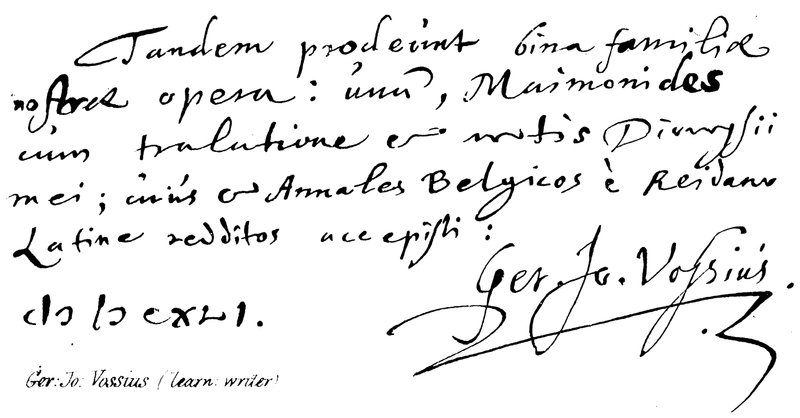 Tandem prodeunt bina familiæ
nostræ opera: unũ, Maimonides
cum tralatione & notis Dionysii
mei; cuius & Annales Belgicos è Reidano
Latine redditos accepisti:
Ger. Jo. Vossius.
cIɔ Iɔ cXLI.
Ger: Jo: Vossius (learn: writer)